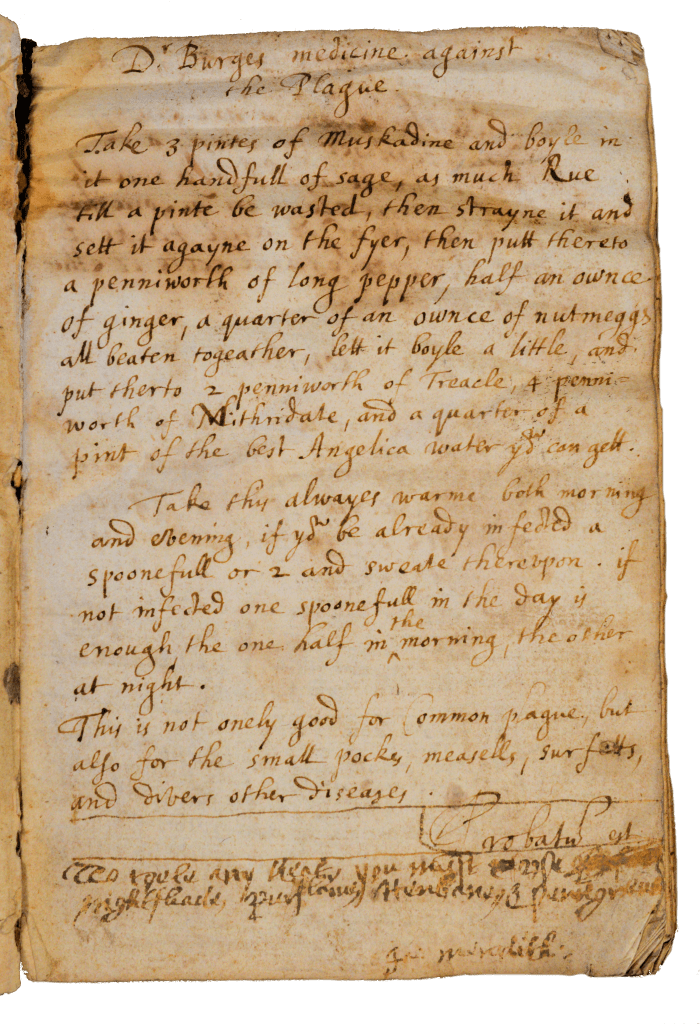 Dr Burges medicine against
the Plague
Take 3 pintes of Muskadine and boyle in
it one handfull of sage, as much Rue
till a pinte be wasted, then strayne it and
sett it agayne on the fyer, then putt thereto
a penniworth of long pepper, half an ownce
of ginger, a quarter of an ownce of nutmeggs
all beaten togeather, lett it boyle a little, and
put therto 2 penniworth of Treacle, 4 penni=
worth of Mithridate, and a quarter of a
pint of the best Angelica water you can gett.
Take this alwayes warme both morning
and evening, if you be already infected a
spoonefull or 2 and sweate therevpon. if
not infected one spoonefull in the day is
enough the one half in the morning, the other
at night.
This is not onely good for Common plague, but
also for the small pocks, measells, surfetts,
and divers other diseases.
Probatum est
any you must
nightshade,